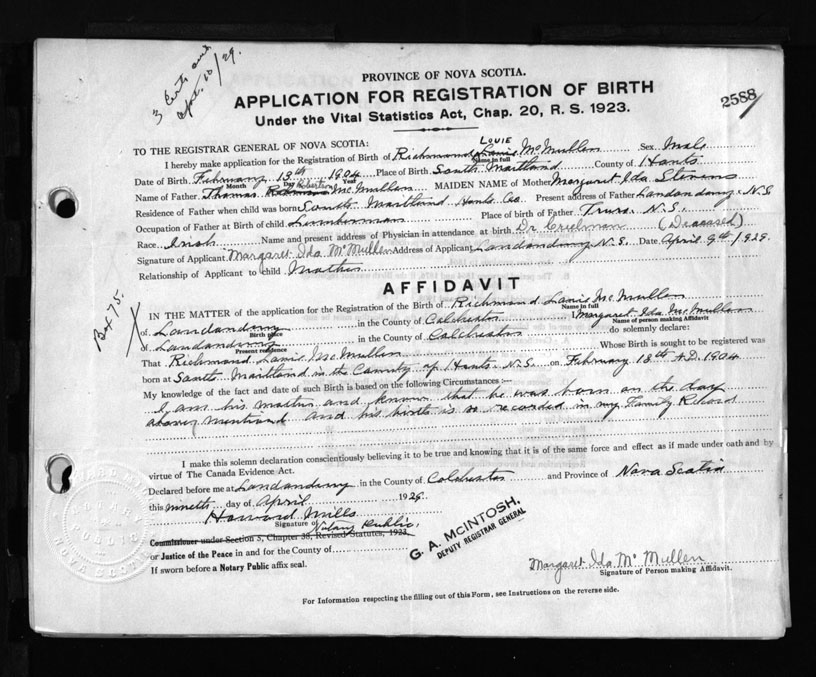 3 Certs and
Apr. 10/29.
PROVINCE OF NOVA SCOTIA.
APPLICATION FOR REGISTRATION OF BIRTH
Under the Vital Statistics Act, Chap. 20, R. S. 1923.
2588
TO THE REGISTRAR GENERAL OF NOVA SCOTIA:
LOUIE
I hereby make application for the Registration of Birth of Richmond Lewis McMullen Sex Male
Name in full
Date of Birth February 18th 1904 Place of Birth South Maitland County of Hants
Month Day Year
Name of Father Thomas Richmond McMullen MAIDEN NAME of Mother Margaret Ida Stevens
Residence of Father when child was born South Maitland Hants Co Present address of Father Londonderry N.S
Occupation of Father at Birth of child Lumberman Place of birth of Father Truro N.S.
Race Irish Name and present address of Physician in attendance at birth Dr (Deceased)
Signature of Applicant Margaret Ida McMullen Address of Applicant Londonderry N.S. Date April 9th 1929
Relationship of Applicant to Child Mother
AFFIDAVIT
Box 75.
IN THE MATTER of the application for the Registration of the Birth of Richmond Lewis McMullen
Name in full
of Londonderry in the County of Colchester I Margaret Ida McMullen
Birth place Name of person making Affidavit
of Londonderry in the County of Colchester do solemnly declare:
Present residence
That Richmond Lewis McMullen Whose Birth is sought to be registered was
born at South Maitland in the County of Hants N.S on February 18th A.D. 1904
My knowledge of the fact and date of such Birth is based on the following Circumstances:—
I am his mother and know that he was born on the day
above mentioned and his birth is so recorded in my Family Record
I make this solemn declaration conscientiously believing it to be true and knowing that it is of the same force and effect as if made under oath and by
virtue of The Canada Evidence Act.
Declared before me at Londonderry in the County of Colchester and Province of Nova Scotia
this ninth day of April 1929.
Howard Mills
Signature of Notary Public,
Commissioner under Section 5, Chapter 38, Revised Statutes, 1923
or Justice of the Peace in and for the County of
If sworn before a Notary Public affix seal.
G. A. McINTOSH,
DEPUTY REGISTRAR GENERAL
Margaret Ida McMullen
Signature of Person making Affidavit.
For Information respecting the filling out of this Form, see Instructions on the reverse side.